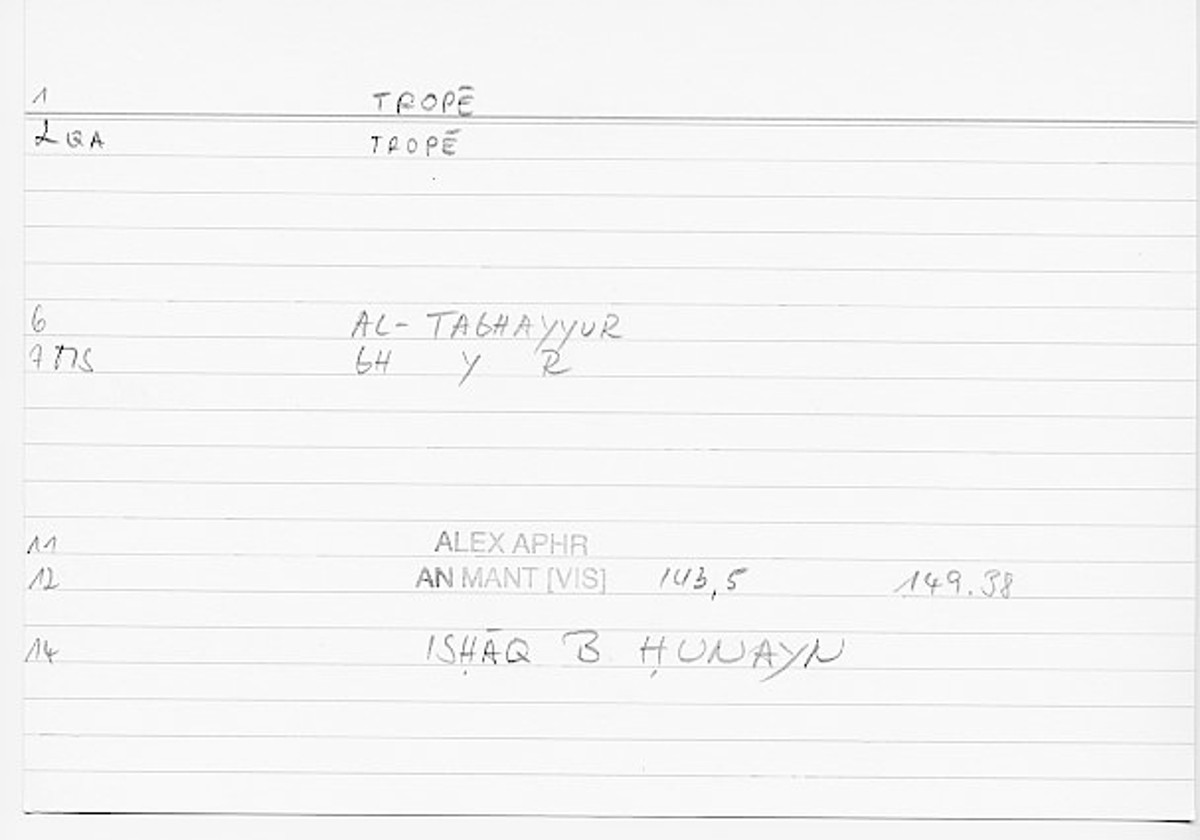 1 TROPĒ
2 QA TROPĒ
6 AL- TAGHAYYUR
7 MS GH Y R
11 ALEX APHR
12 AN MANT [VIS] 143,5 149.38
14 ISḤĀQ B ḤUNAYN